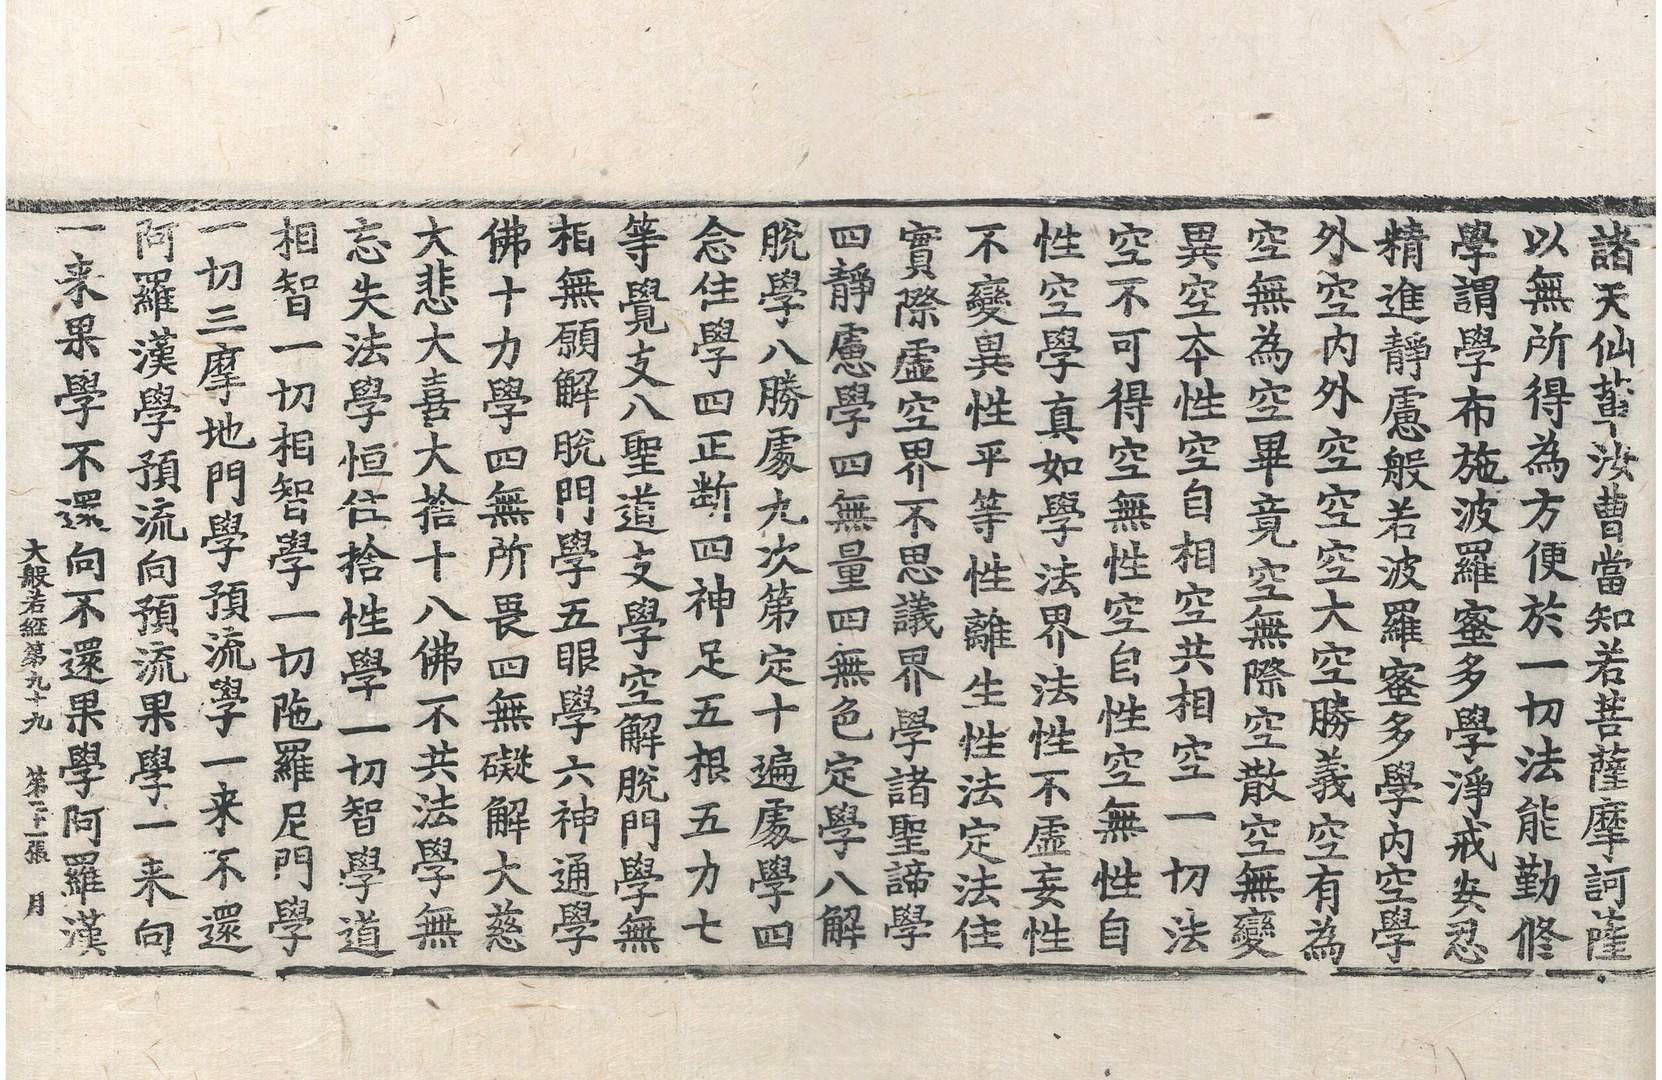 諸天仙輩汝曹當知若菩薩摩訶薩
以無所得為方便於一切法能勤修
學謂學布施波羅蜜多學淨戒安忍
精進靜慮般若波羅蜜多學內空學
外空內外空空空大空勝義空有為
空無為空畢竟空無際空散空無變
異空本性空自相空共相空一切法
空不可得空無性空自性空無性自
性空學真如學法界法性不虛妄性
不變異性平等性離生性法定法住
實際虛空界不思議界學諸聖諦學
四靜慮學四無量四無色定學八解
脫學八勝處九次第定十遍處學四
念住學四正斷四神足五根五力七
等覺支八聖道支學空解脫門學無
相無願解脫門學五眼學六神通學
佛十力學四無所畏四無礙解大慈
大悲大喜大捨十八佛不共法學無
忘失法學恒住捨性學一切智學道
相智一切相智學一切陁羅尼門學
一切三摩地門學預流學一来不還
阿羅漢學預流向預流果學一来向
一来果學不還向不還果學阿羅漢
大般若經第九十九 第二十一張 月